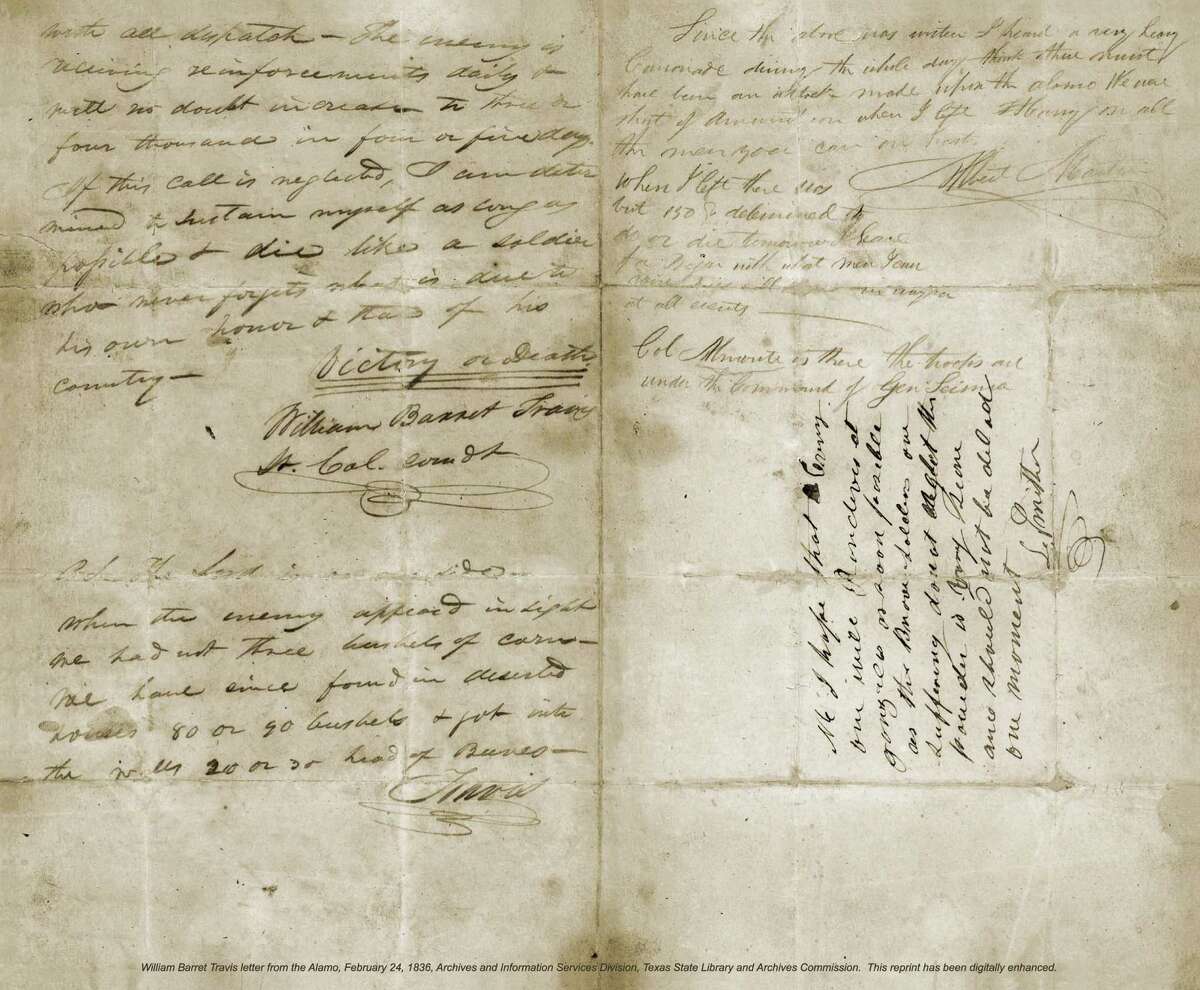 with all dispatch — The enemy is
receiving reinforcements daily &
will no doubt increase to three or
four thousand in four or five days.
If this call is neglected, I am deter
mined to sustain myself as long as
possible & die like a soldier
who never forgets what is due to
his own honor & that of his
country —
Victory or Death
William Barret Travis
Lt. Col. comdt
P.S. The Lord is on our side —
when the enemy appeard in sight
we had not three bushels of corn —
we have since found in deserted
houses 80 or 90 bushels & got into
the walls 20 or 30 head of Beeves —
Travis
Since the above was writen I heard a very heavy
Canonade during the whole day think there must
have been an attack made upon the alamo We were
short of Amunition when I left Hurry on all
the men you can in hast
Albert Martin
When I left there was
but 150 & determined to
do or die tomorrow I leave
for Bejar with what men I can
at all events —
Col Almonte is there the troops are
under the Command of Gen Seisma
I hope that Every
one will Randeves at
gonzales as soon poseble
as the Brave Soldiers are
suffering do not neglect the
powder is very scarce
and should not be delad
one moment
L. Smither
William Barret Travis letter from the Alamo, February 24, 1836, Archives and Information Services Division, Texas State Library and Archives Commission. This reprint has been digitally enhanced.